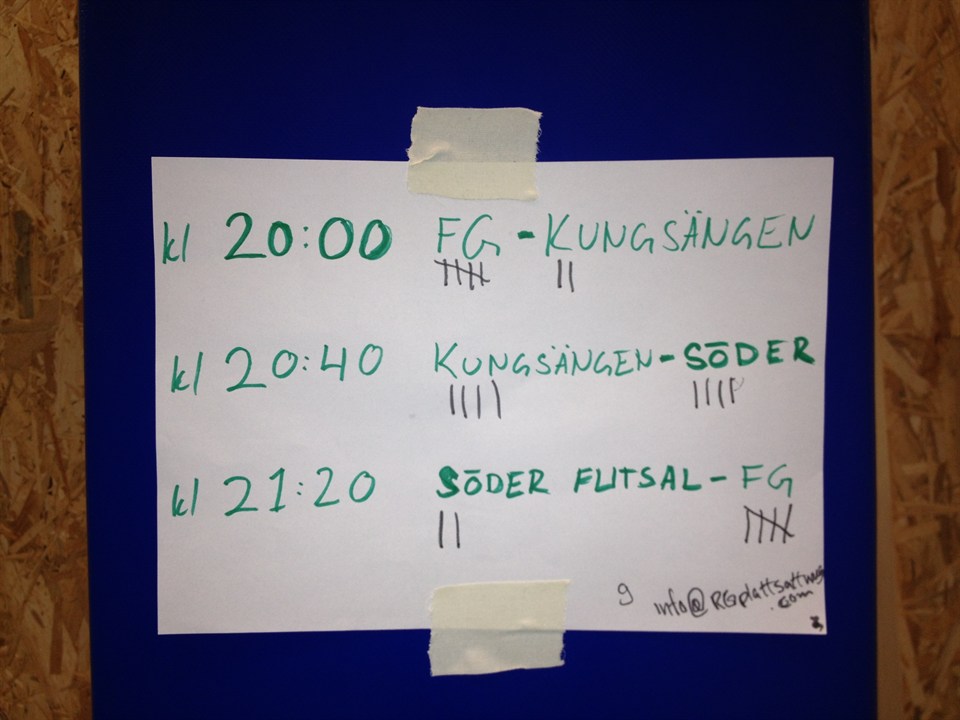 kl 20:00 FG - KUNGSÄNGEN
kl 20:40 KUNGSÄNGEN - SÖDER
kl 21:20 SÖDER FUTSAL - FG
9 info@RGplattsattning
.com